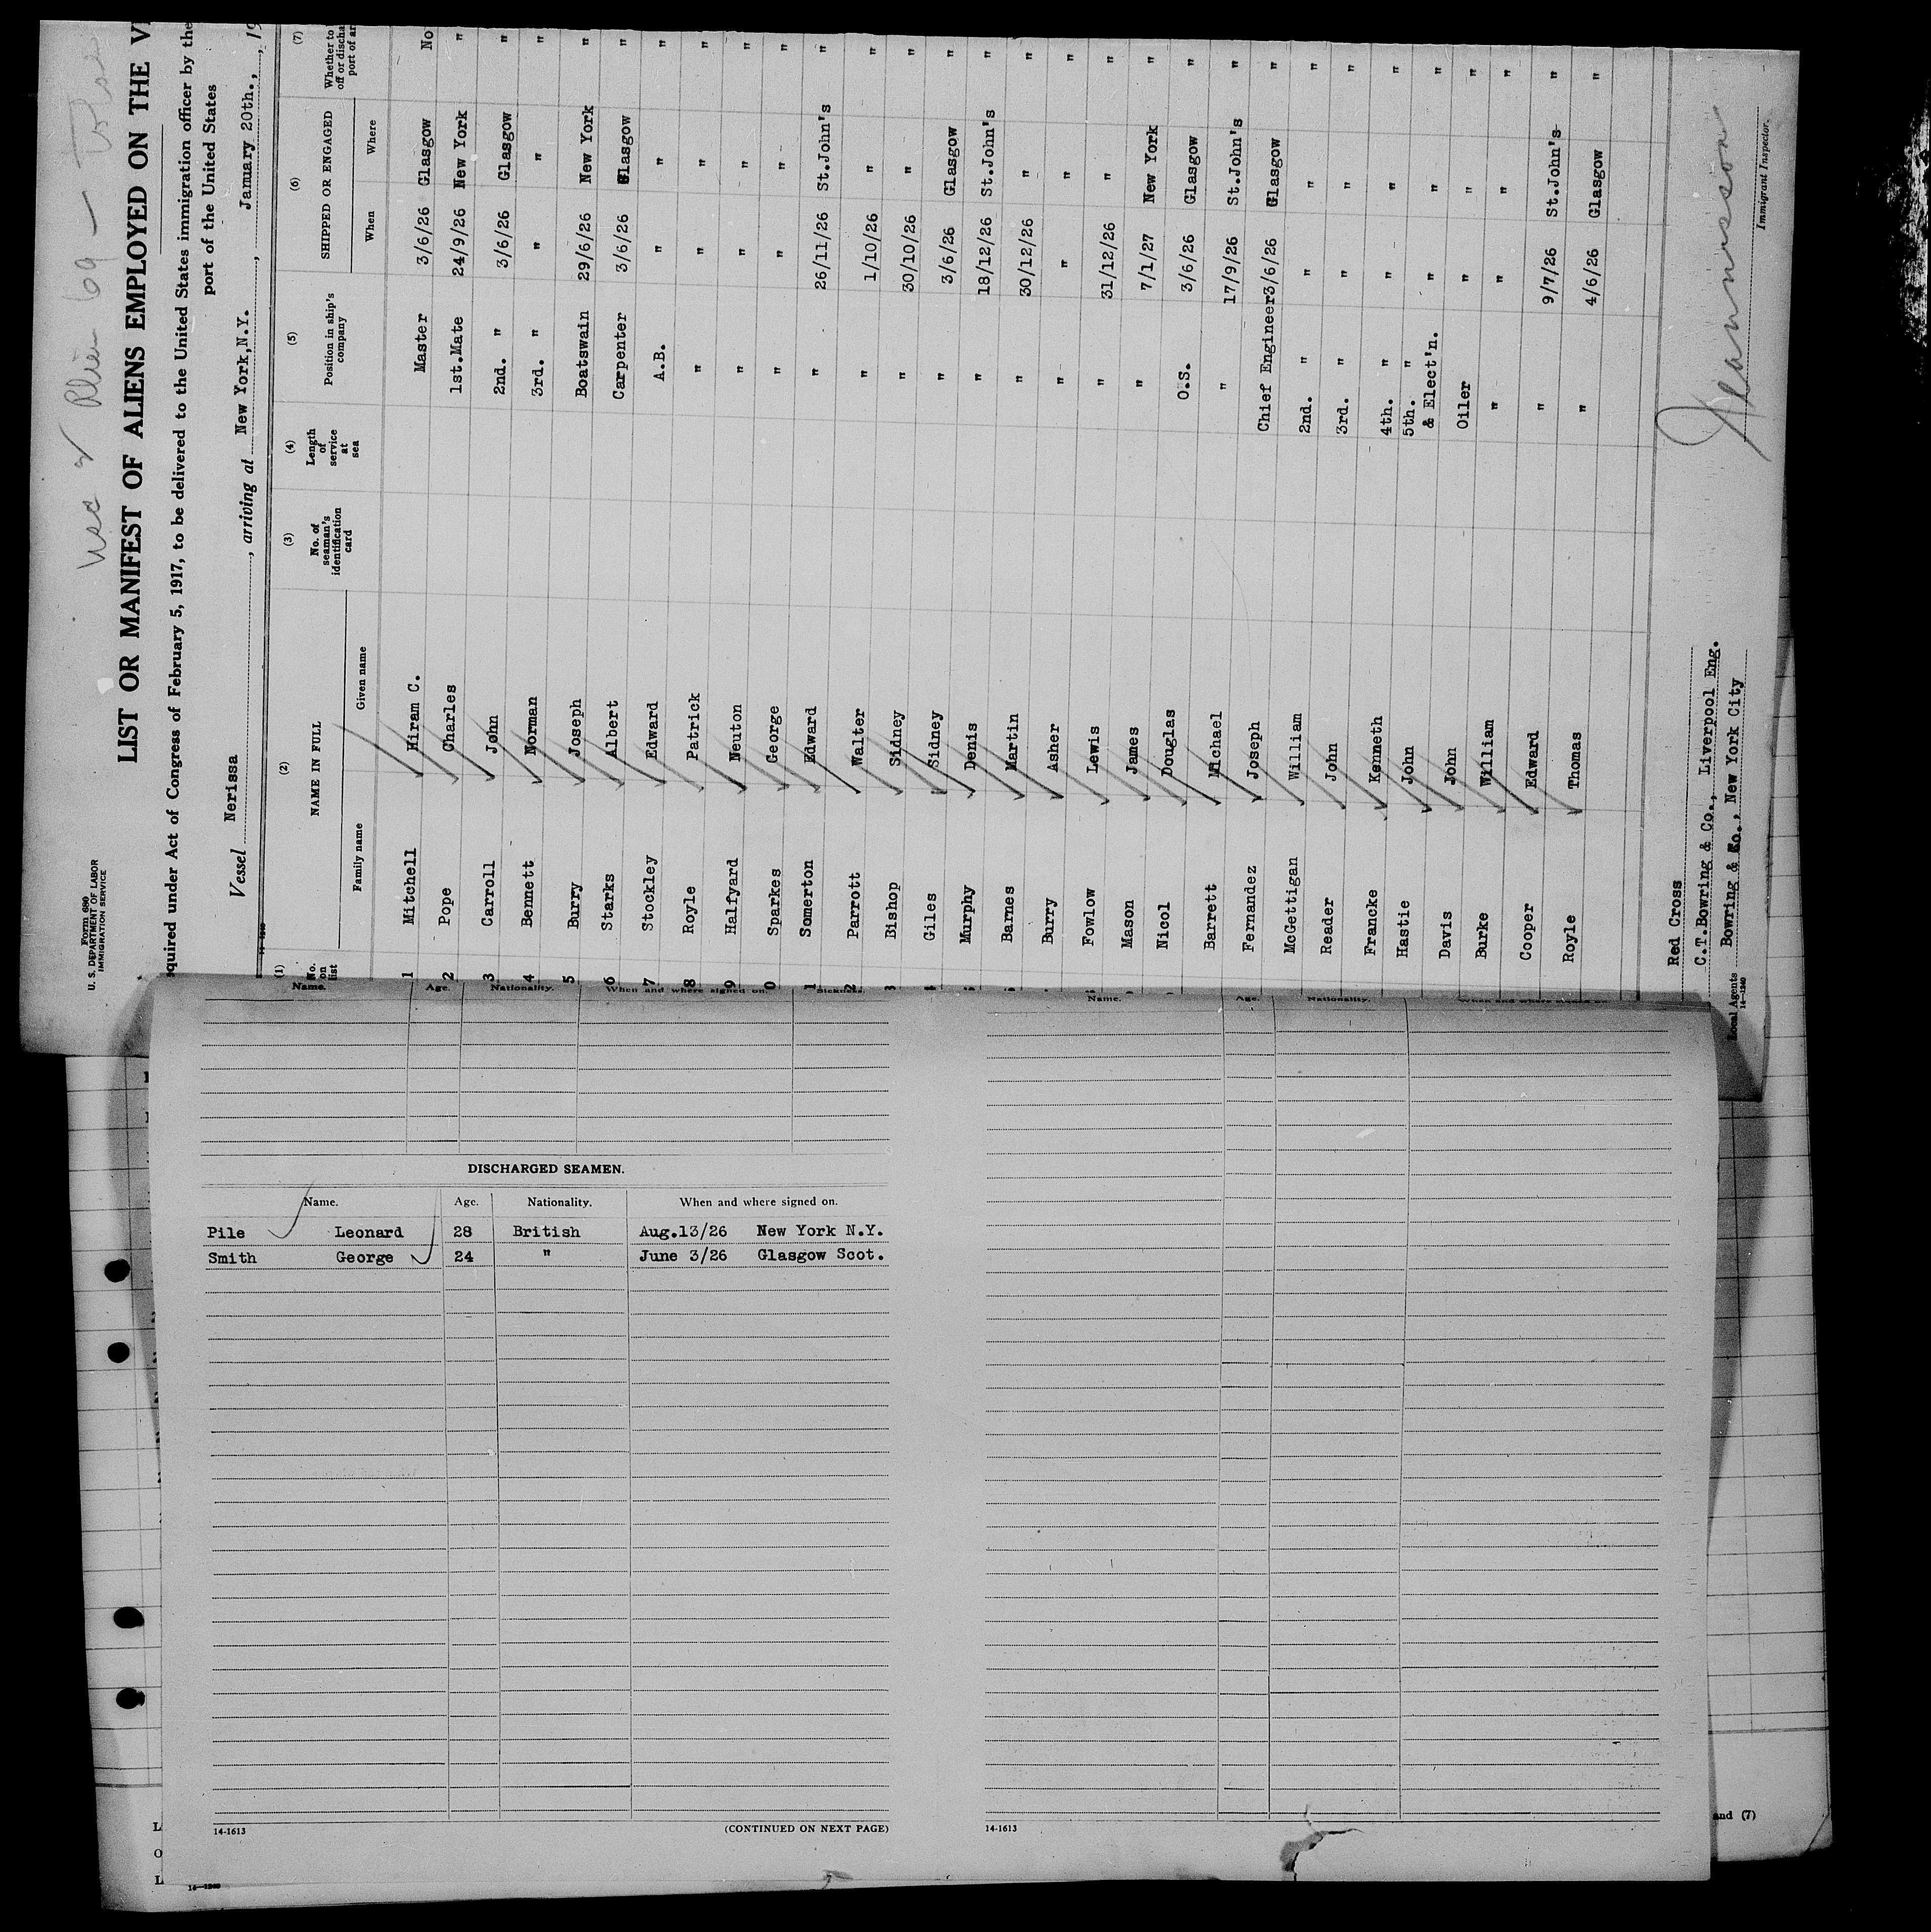 Form 689
U. S. DEPARTMENT OF LABOR
IMMIGRATION SERVICE
LIST OR MANIFEST OF ALIENS EMPLOYED ON THE
equired under Act of Congress of February 5, 1917, to be delivered to the United States immigration officer by the
port of the United States
Vessel Nerissa, arriving at New York,N.Y., January 20th., 19
(1) (2) (3) (4) (5) (6) (7)
No. on list NAME IN FULL No. of seaman's identification card Length of service at sea Position in ship's company SHIPPED OR ENGAGED Whether to
off or discha
port of ar
Family name Given name When Where
1 Mitchell Hiram C. Master 3/6/26 Glasgow No
2 Pope Charles 1st.Mate 24/9/26 New York "
3 Carroll John 2nd. " 3/6/26 Glasgow "
4 Bennett Norman 3rd. " " " "
5 Burry Joseph Boatswain 29/6/26 New York "
6 Starks Albert Carpenter 3/6/26 Glasgow "
7 Stockley Edward A.B. " " "
8 Royle Patrick " " " "
9 Halfyard Neuton " " " "
0 Sparkes George " " " "
1 Somerton Edward " 26/11/26 St.John's "
2 Parrott Walter " 1/10/26 " "
3 Bishop Sidney " 30/10/26 " "
Giles Sidney " 3/6/26 Glasgow "
Murphy Denis " 18/12/26 St.John's "
Barnes Martin " 30/12/26 " "
Burry Asher " " " "
Fowlow Lewis " 31/12/26 " "
Mason James " 7/1/27 New York "
Nicol Douglas O.S. 3/6/26 Glasgow "
Barrett Michael " 17/9/26 St.John's "
Fernandez Joseph Chief Engineer 3/6/26 Glasgow "
McGettigan William 2nd. " " " "
Reader John 3rd. " " " "
Francke Kenneth 4th. " " " "
Hastie John 5th. " & Elect'n. " " "
Davis John Oiler " " "
Burke William " " " "
Cooper Edward " 9/7/26 St.John's "
Royle Thomas " 4/6/26 Glasgow "
Red Cross
C.T.Bowring & Co., Liverpool Eng.
Bowring & Co., New York City
Local Agents
14—1240
Immigrant Inspector.
Name. Age. Nationality. When and where signed on. Sickness.
Name. Age. Nationality. When and where signed on.
DISCHARGED SEAMEN.
Name. Age. Nationality. When and where signed on.
Pile Leonard 28 British Aug.13/26 New York N.Y.
Smith George 24 " June 3/26 Glasgow Scot.
14-1613 (CONTINUED ON NEXT PAGE)
14-1613
and (7)
14—1240